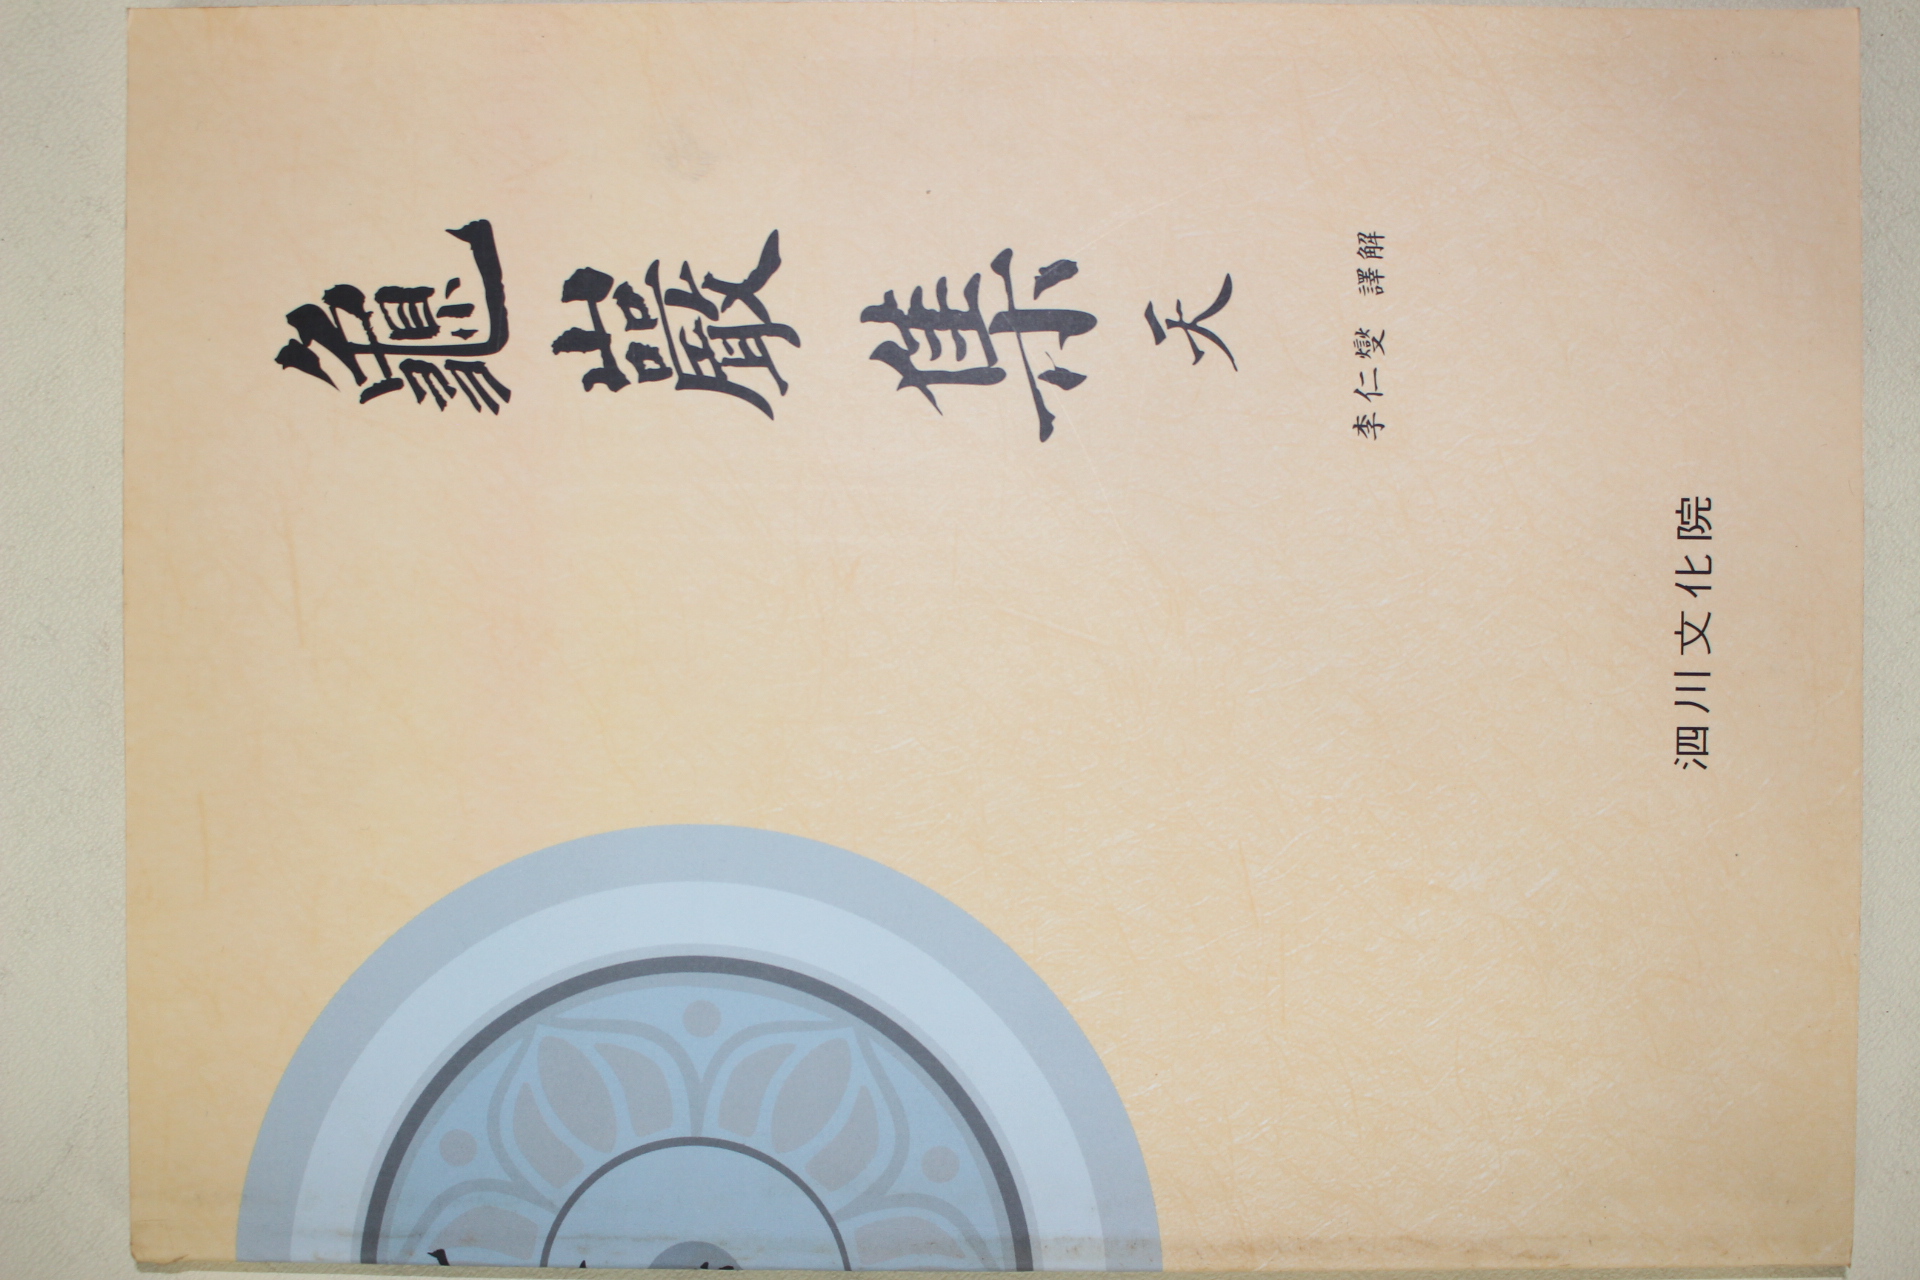 龜巖集 天
李仁燮 譯解
泗川文化院